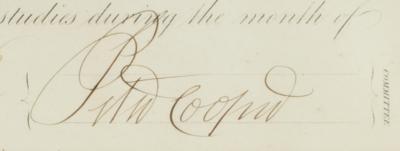 studies during the month of
Peter Cooper
COMMITTEE